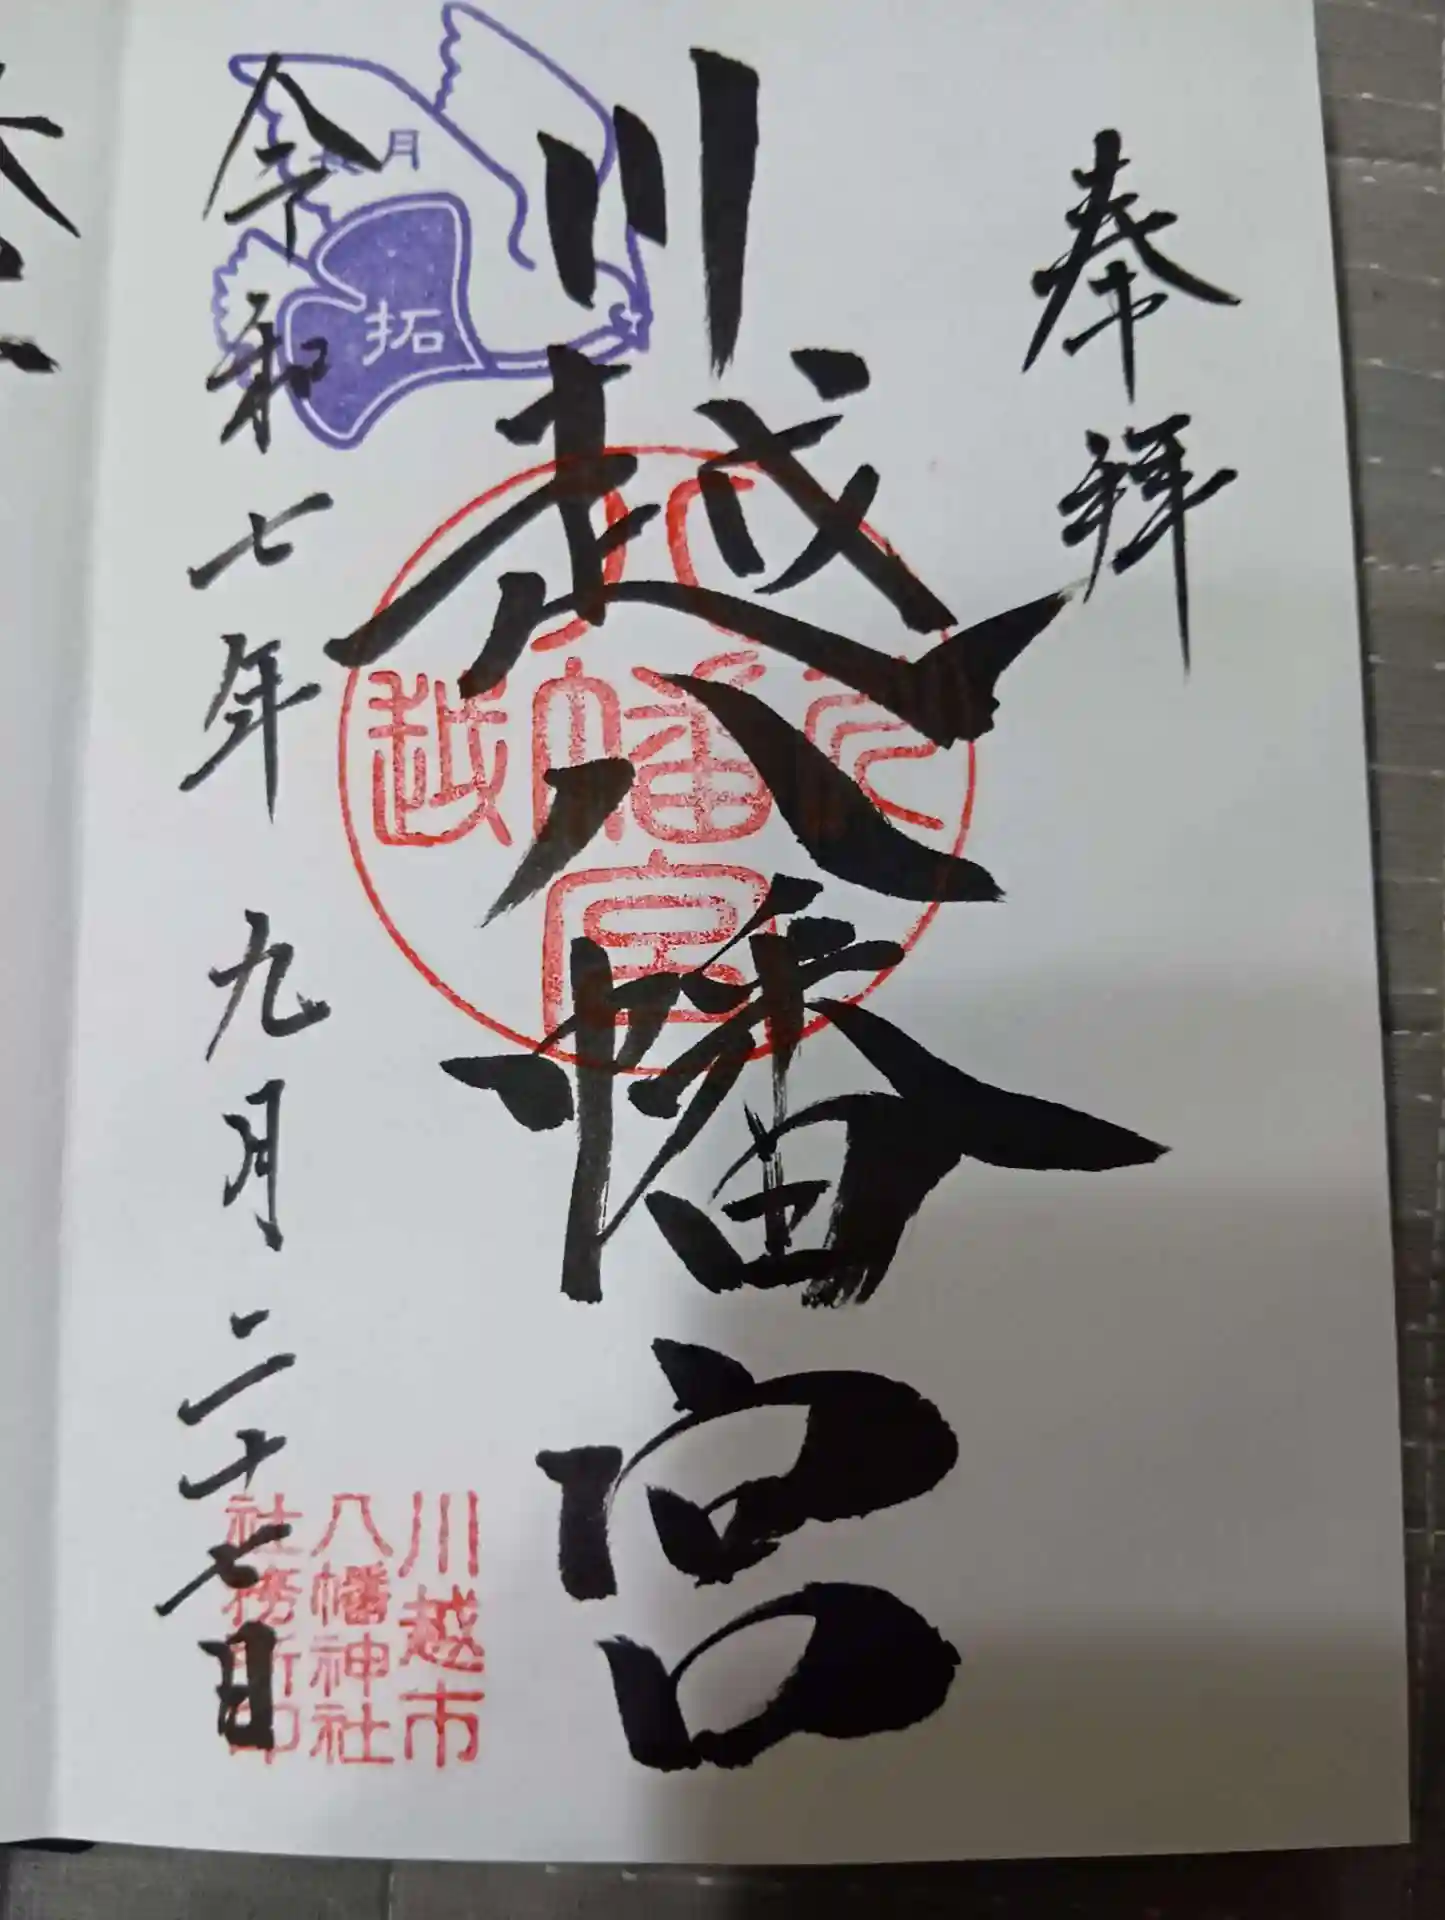 奉拝
川越八幡宮
川越八幡宮
月
拓
令和七年九月二十七日
川越市
八幡神社
社務所印